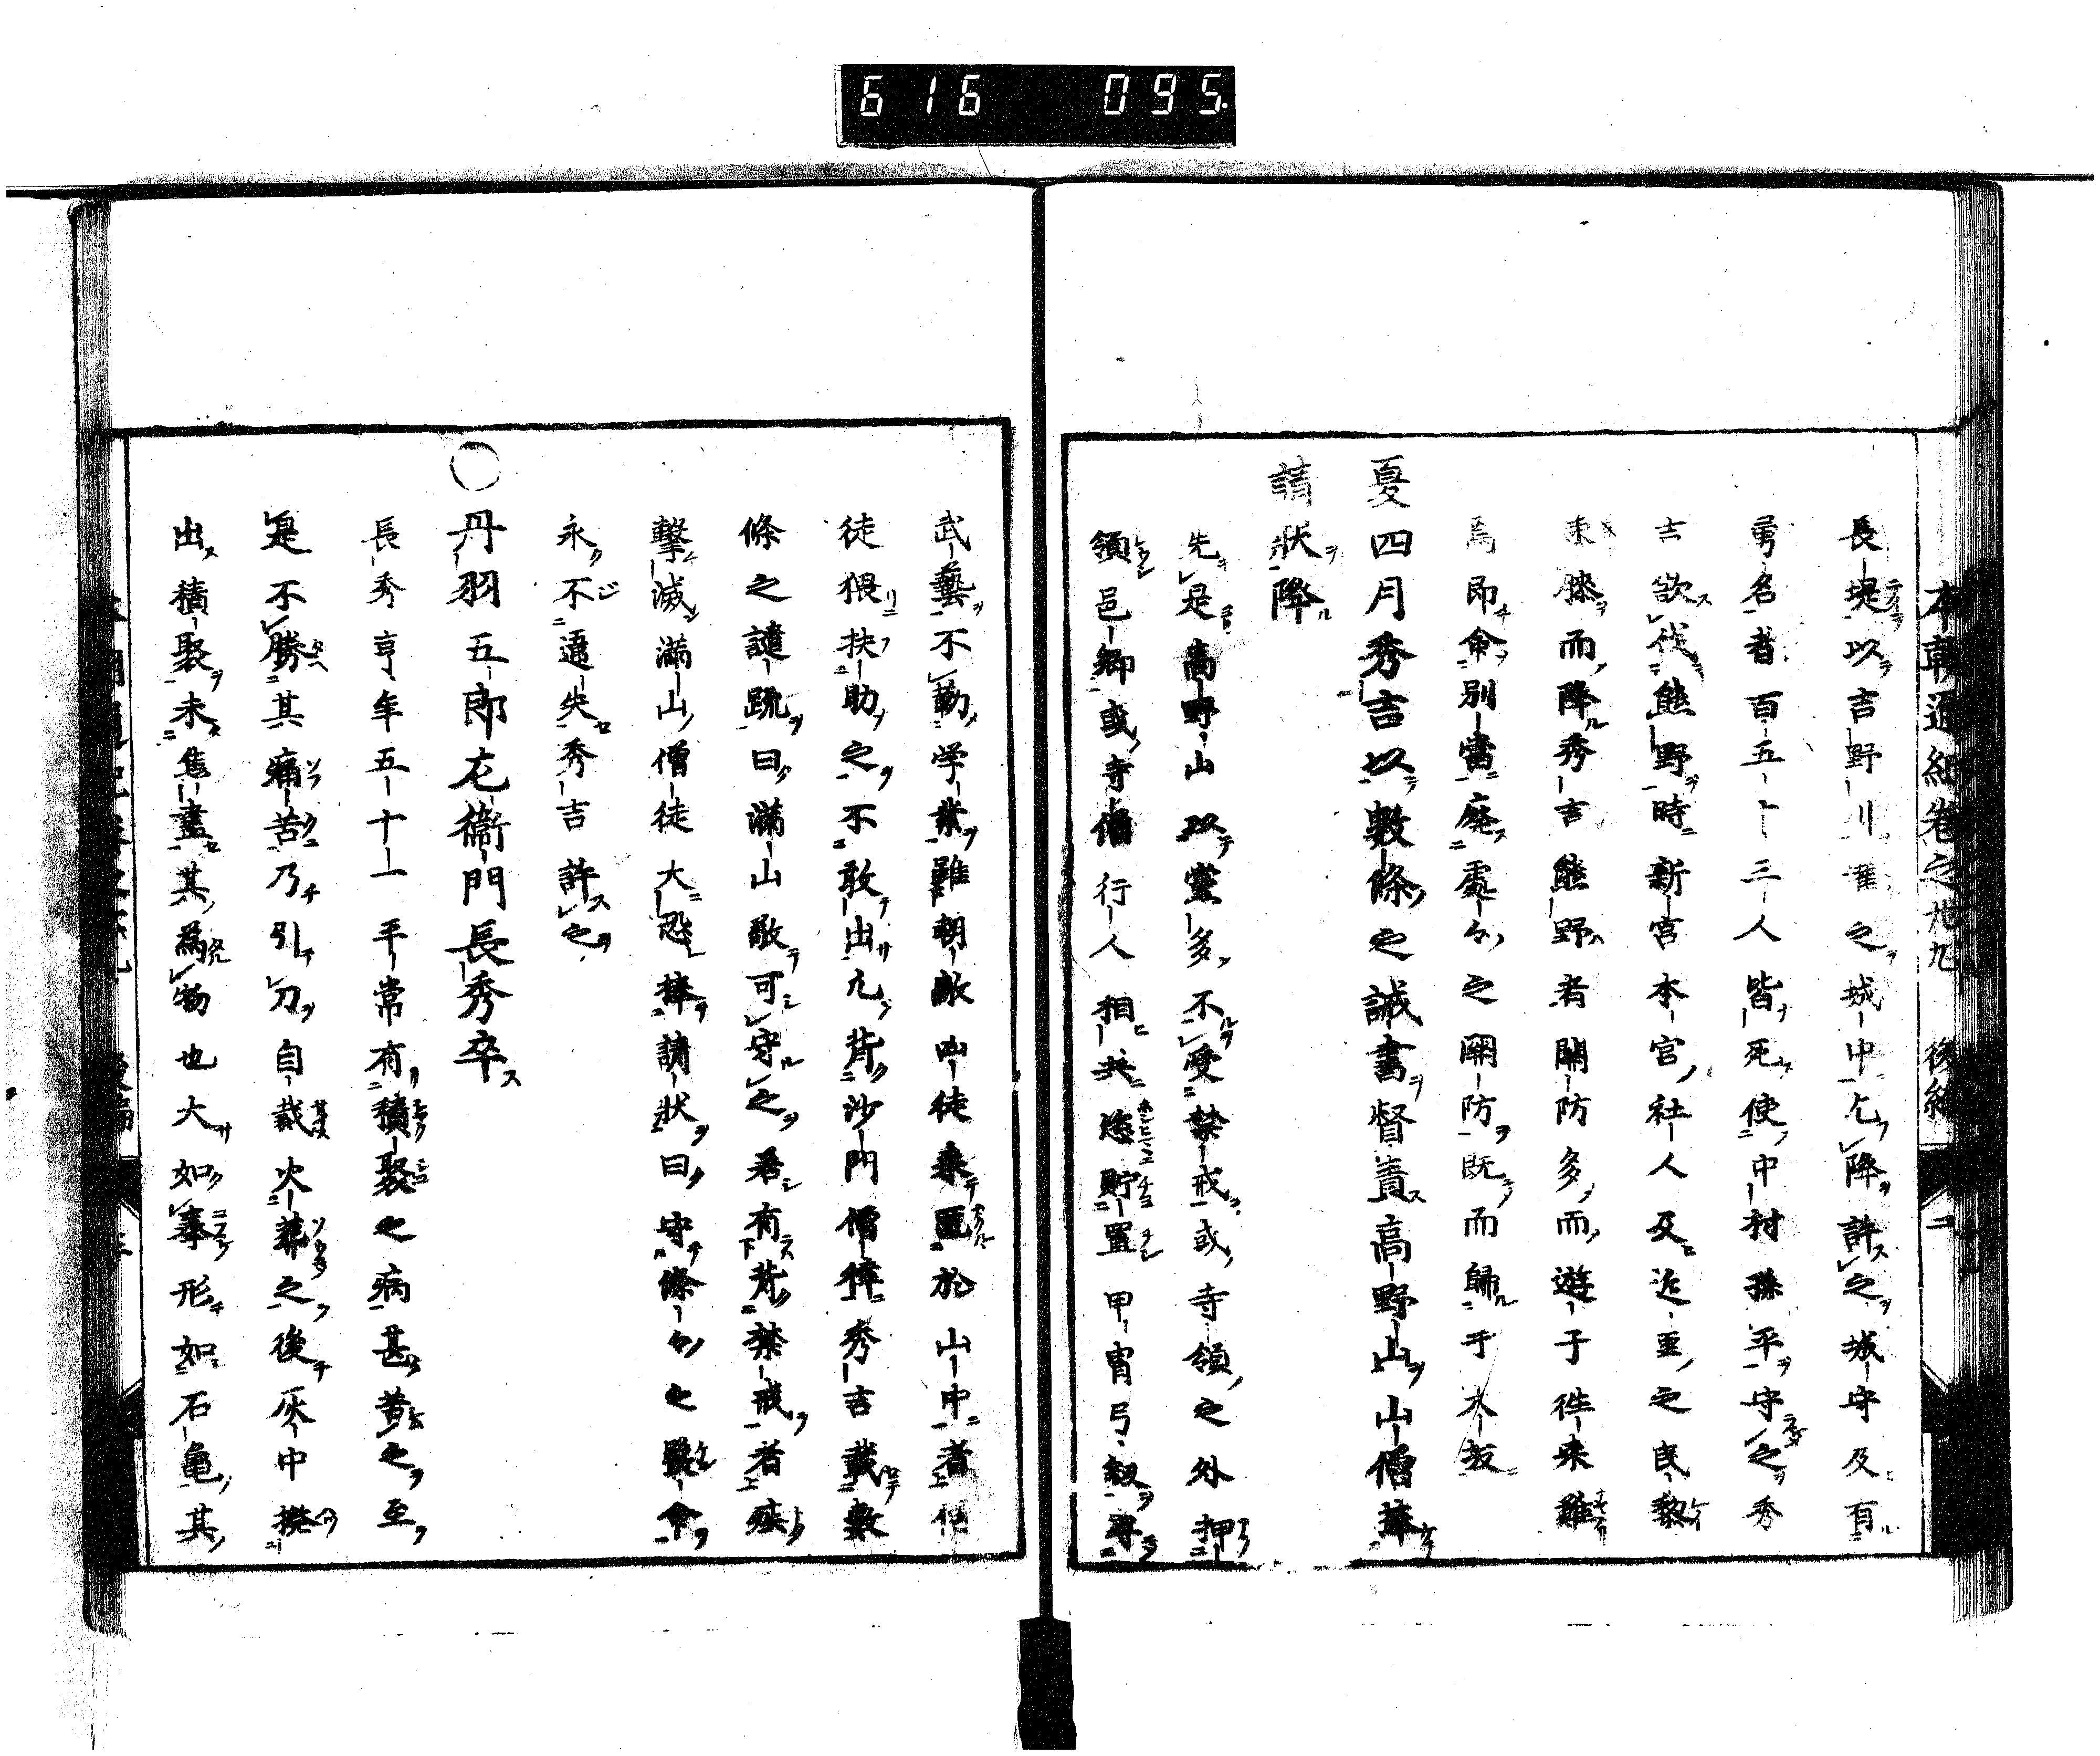 616 095
本朝通紀卷之 九 後編 二
長堤以吉野川灌之城中乞降許之城守及有
勇名者百五十三人皆死使中村孫平守之秀
吉欲伐熊野時新宮本宮社人及近里之民黎
束膝而降秀吉熊野者關防多而遊子往来難
焉即命別當廃處々之関防既而歸于大坂
夏四月秀吉以數條之誡書督責高野山山僧捧
請状降
先是高野山以黨多不受禁戒或寺領之外押
領邑郷或寺僧行人相共恣貯置甲冑弓釼專
武藝不勤学業雖朝敵凶徒来匿於山中者僧
徒猥扶助之不敢出凡背沙門僧律秀吉載數
條之譴疏曰滿山敬可守之若有背禁戒者殃
擊滅滿山僧徒大恐捧請状曰守條々之嚴令
永不遺失秀吉許之
○丹羽五郎左衞門長秀卒
長秀享年五十一平常有積聚之病甚苦之至
是不勝其痛苦乃引刀自裁火葬之後灰中撥
出積聚未焦盡其為物也大如拳形如石龜其